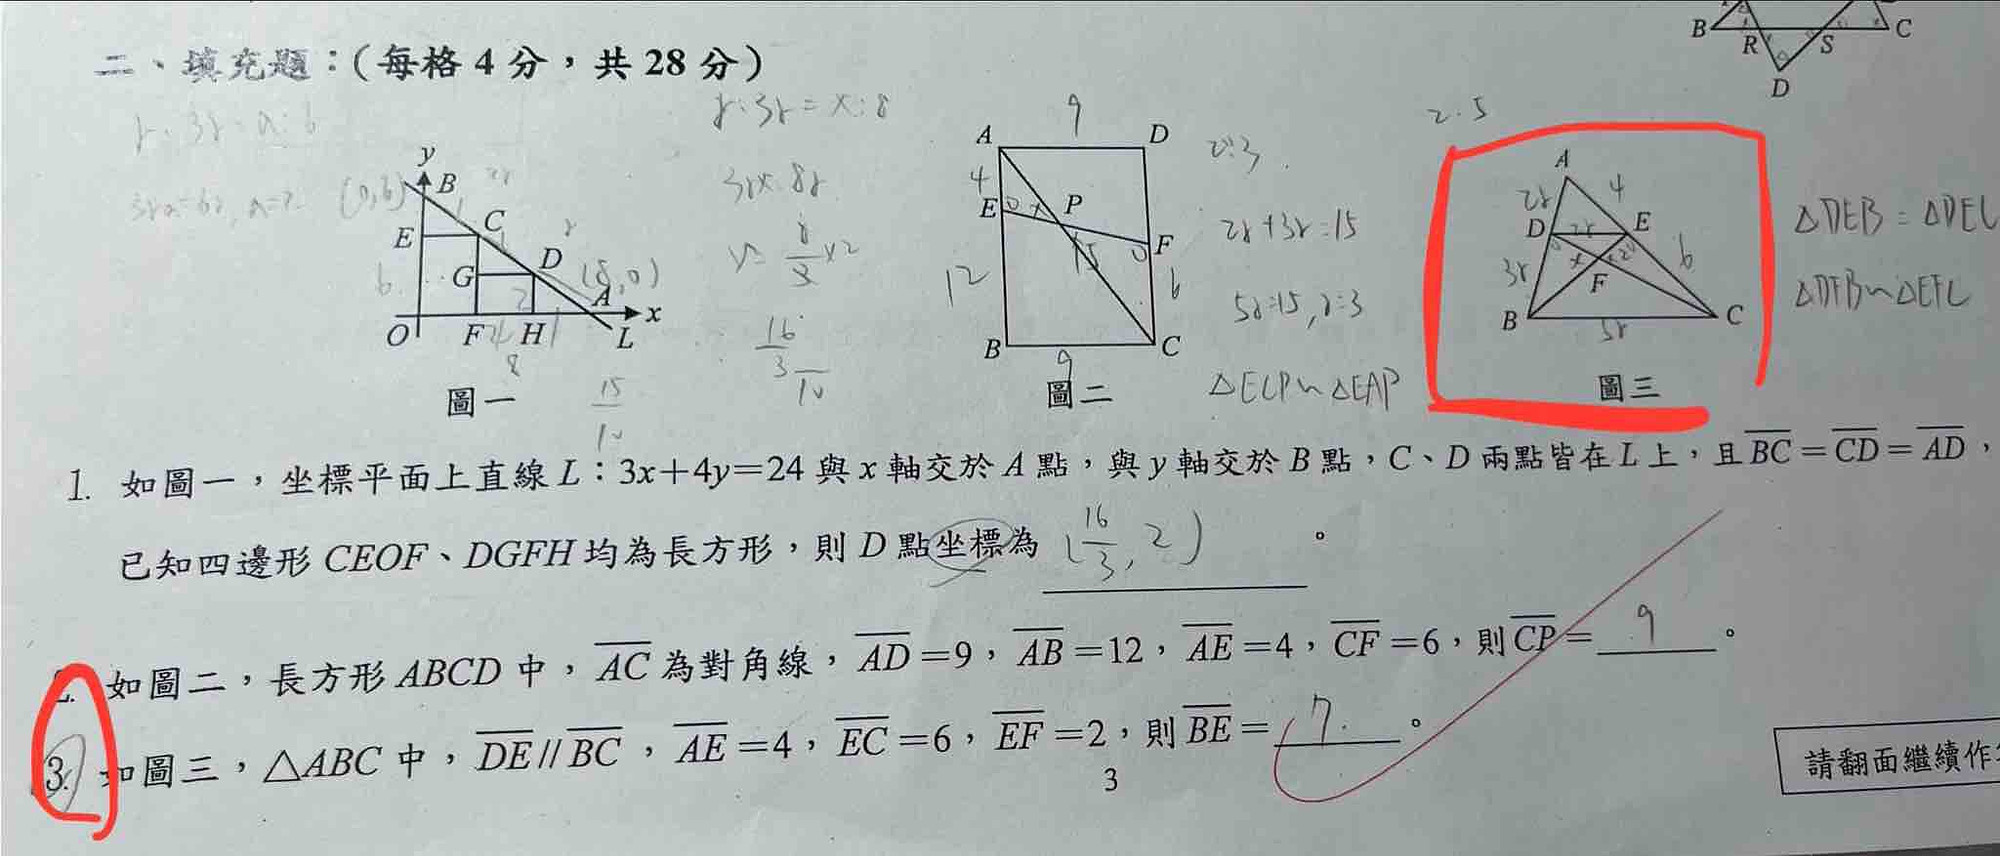 B R S C
D
二、填充題：（每格 4 分，共 28 分）
r : 3r = a : 6
3ra = 6r, a = 2
(0,6)
y
B
C
E
G
D
6
2
(8,0)
A
O F H L x
8
圖一
r : 3r = x : 8
3rx = 8r
16
3
15
10
10
9
A D
4
E P
F
12
15
6
B C
9
圖二
2:3
2r+3r=15
5r=15, r=3
△ECP~△EAP
2.5
A
2r 4
D 2r E
3r 6
F
B C
5r
圖三
△DEB = △DEC
△DFB~△EFC
1. 如圖一，坐標平面上直線 L：3x＋4y＝24 與 x 軸交於 A 點，與 y 軸交於 B 點，C、D 兩點皆在 L 上，且 BC＝CD＝AD，
已知四邊形 CEOF、DGFH 均為長方形，則 D 點坐標為 (16/3, 2)。
2. 如圖二，長方形 ABCD 中，AC 為對角線，AD＝9，AB＝12，AE＝4，CF＝6，則 CP＝9。
3. 如圖三，△ABC 中，DE // BC，AE＝4，EC＝6，EF＝2，則 BE＝7.。
3
請翻面繼續作